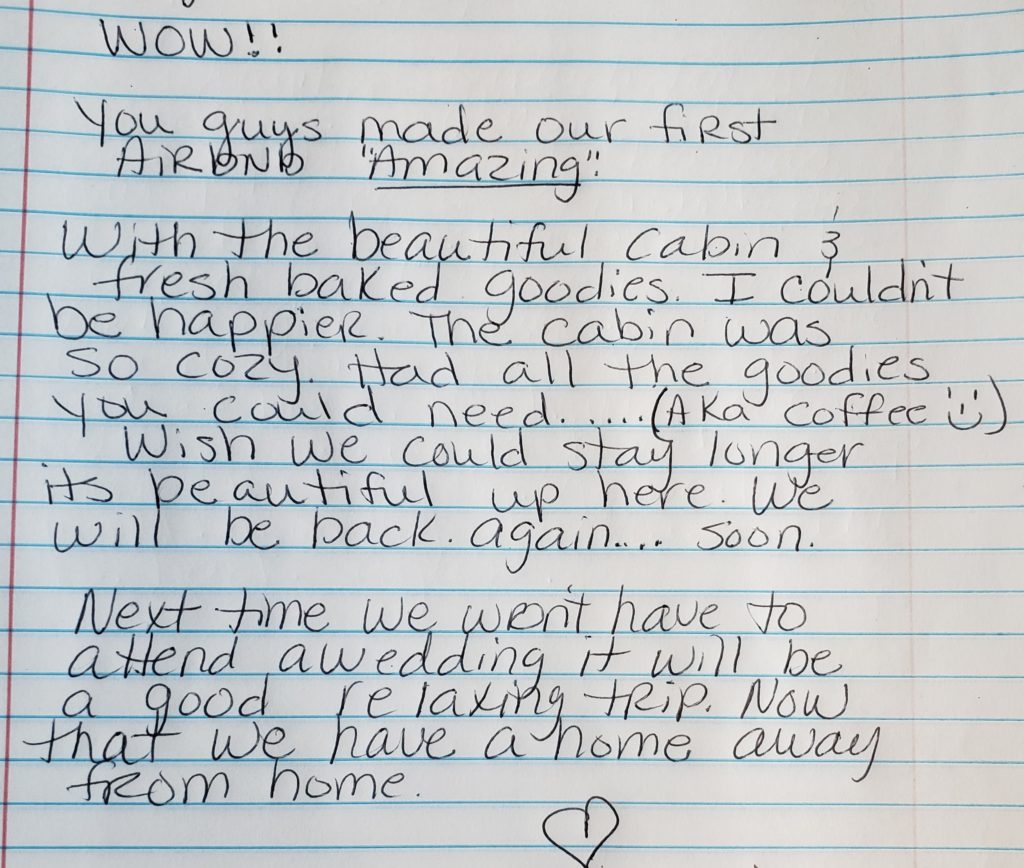 WOW!!
You guys made our first
AiRBNB "Amazing".
With the beautiful cabin &
fresh baked goodies. I couldn't
be happier. The cabin was
so cozy. Had all the goodies
you could need......(AKa coffee ü)
Wish we could stay longer
its beautiful up here. We
will be back. again.... soon.
Next time we won't have to
attend a wedding it will be
a good relaxing trip. Now
that we have a home away
from home.